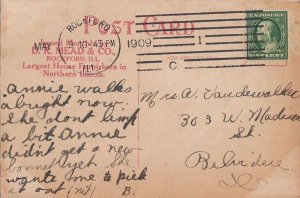 POST CARD
ROCKFORD
MAY
45 PM
1909
ILL.
1
C
D. R. MEAD & CO.
ROCKFORD, ILL.
Largest House Furnishers in
Northern Illinois.
Annie walks
alright now.
She dont limp
a bit Annie
didn't get a new
bonnet yet She
wants me to pick
it out (nit) B.
Mrs. A. Vandewalker
303 W. Madison
St.
Belvidere
Ill